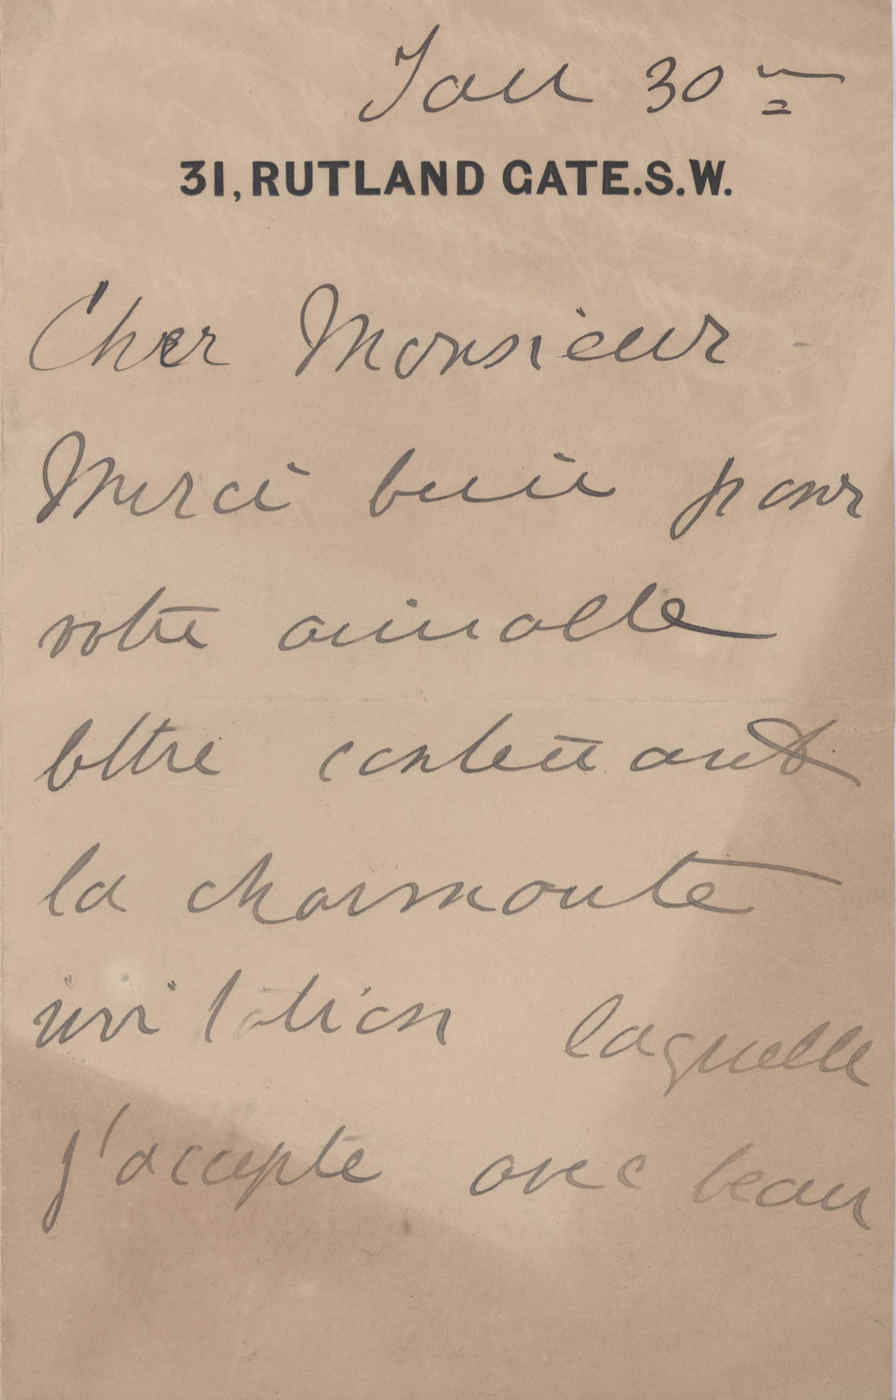 Jan 30th
31, RUTLAND GATE. S.W.
Cher Monsieur -
Merci bien pour
votre aimable
lettre contenant
la charmante
invitation laquelle
j'accepte avec beau